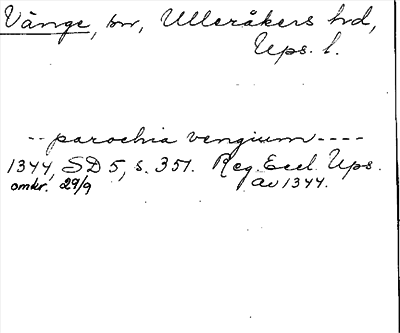 Vänge, sn, Ulleråkers hd,
Ups. l.
-- parochia vengium ----
1344, SD 5, s. 351. Reg. Eccl. Ups.
omkr. 29/9 av 1344.